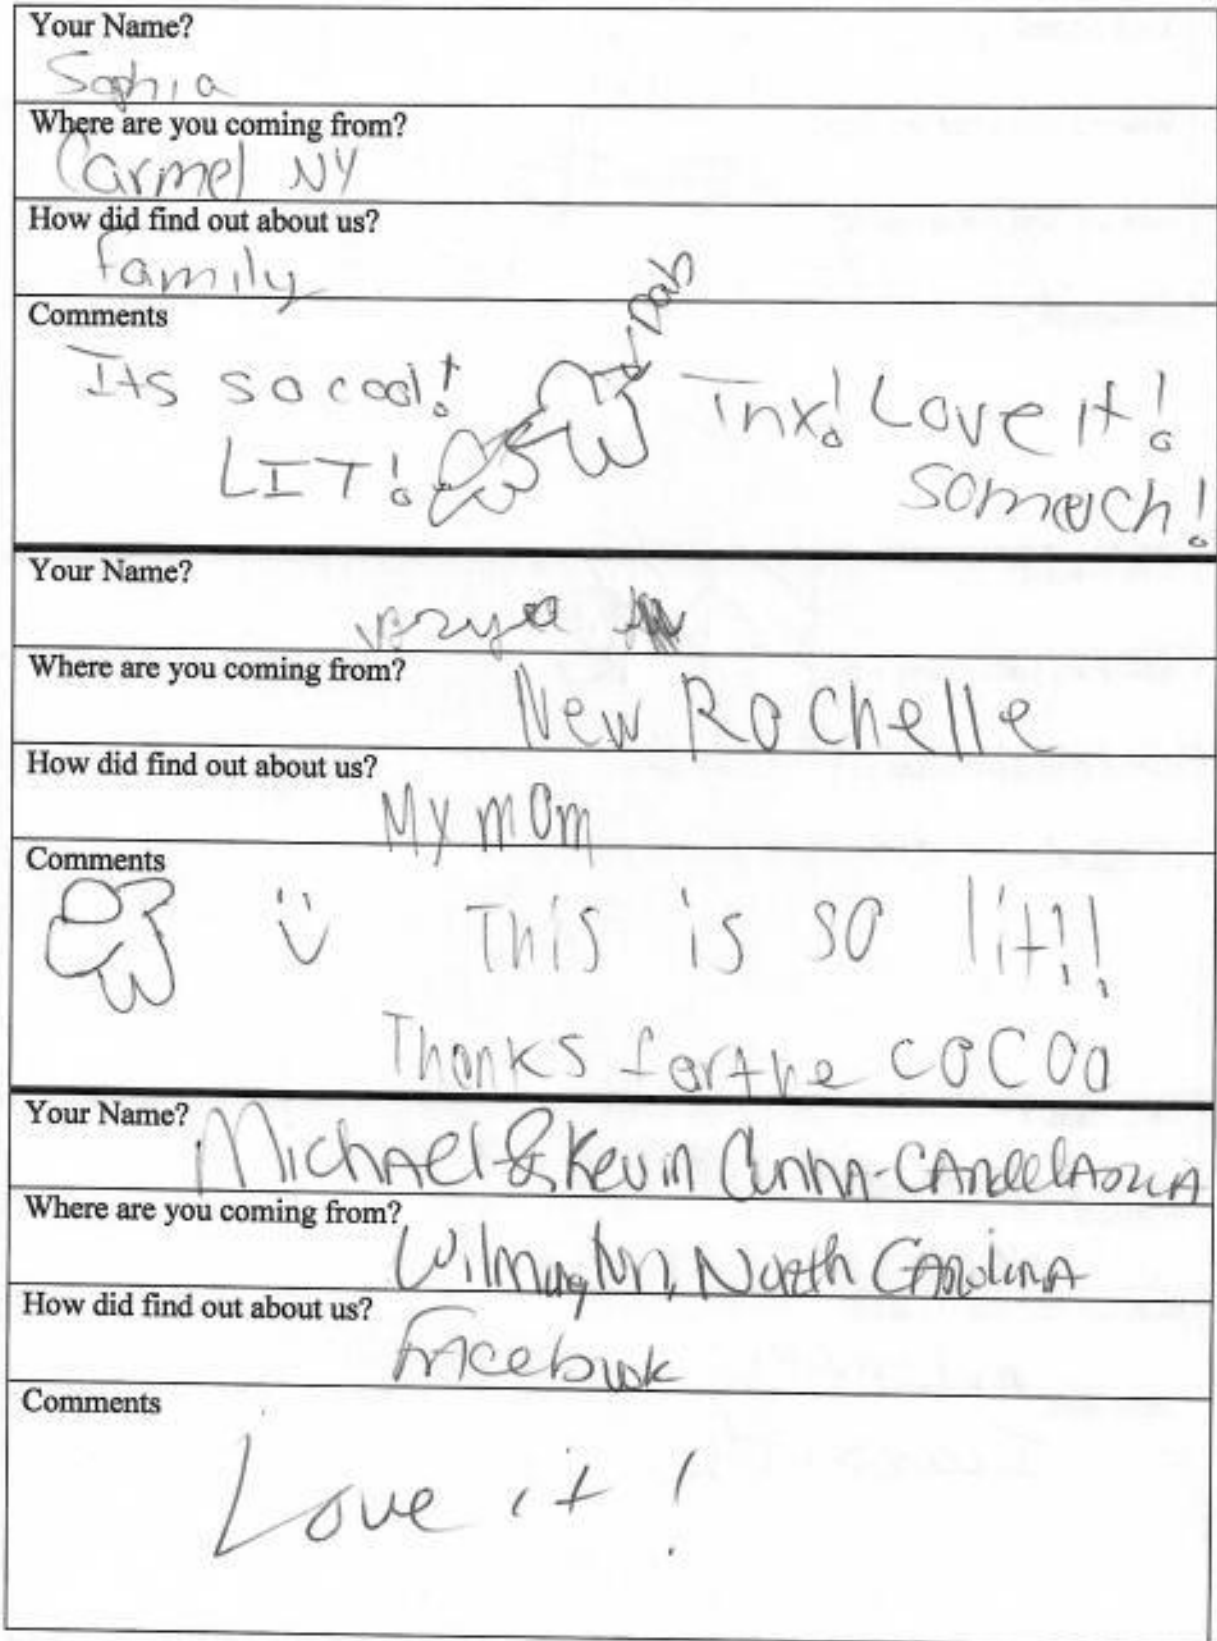 Your Name?
Sophia
Where are you coming from?
Carmel NY
How did find out about us?
Family
Comments
Dab
Its so cool!
Tnx! Love it!
LIT!
somuch!
Your Name?
Where are you coming from?
New Rochelle
How did find out about us?
My mom
Comments
This is so lit!!
Thanks for the cocoa
Your Name?
Michael & Kevin Cunha-Candelaria
Where are you coming from?
Wilmington, North Carolina
How did find out about us?
Facebook
Comments
Love it!